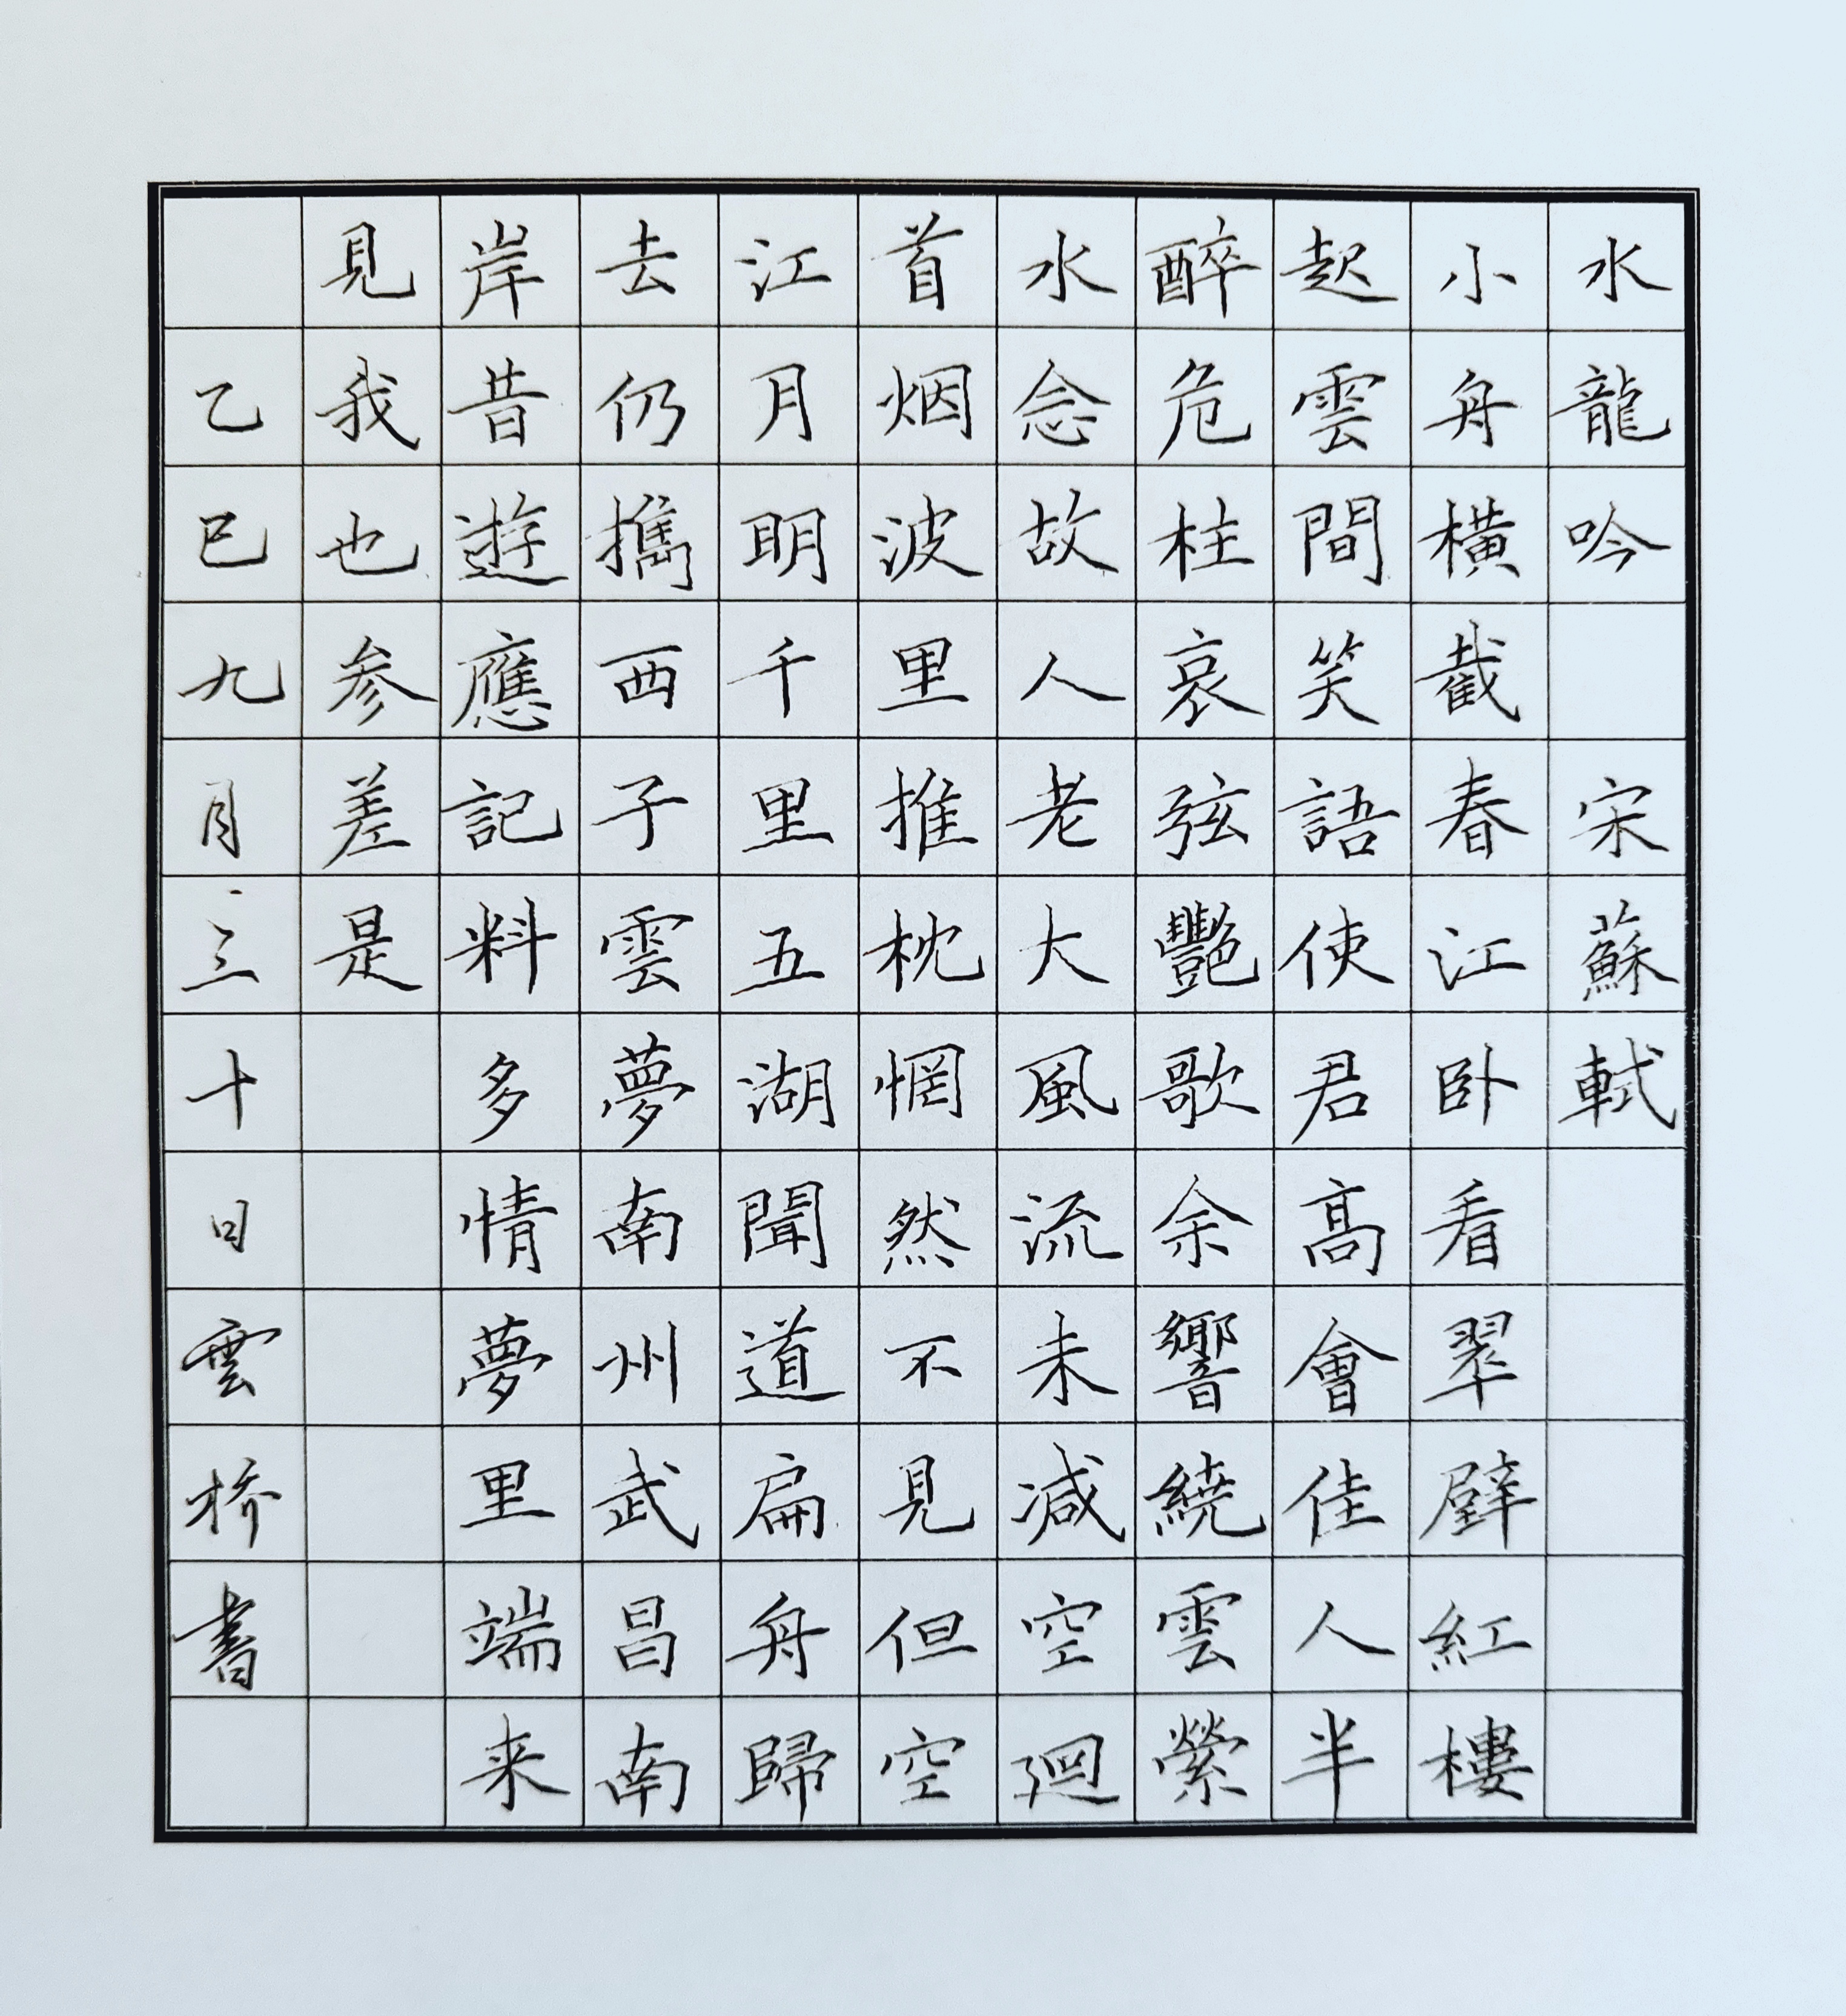 水龍吟 宋蘇軾
小舟橫截春江卧看翠壁紅樓
起雲間笑語使君高會佳人半
醉危柱哀弦艷歌余響繞雲縈
水念故人老大風流未減空廻
首烟波里推枕惘然不見但空
江月明千里五湖聞道扁舟歸
去仍攜西子雲夢南州武昌南
岸昔遊應記料多情夢里端来
見我也参差是
乙巳九月三十日雲桥書